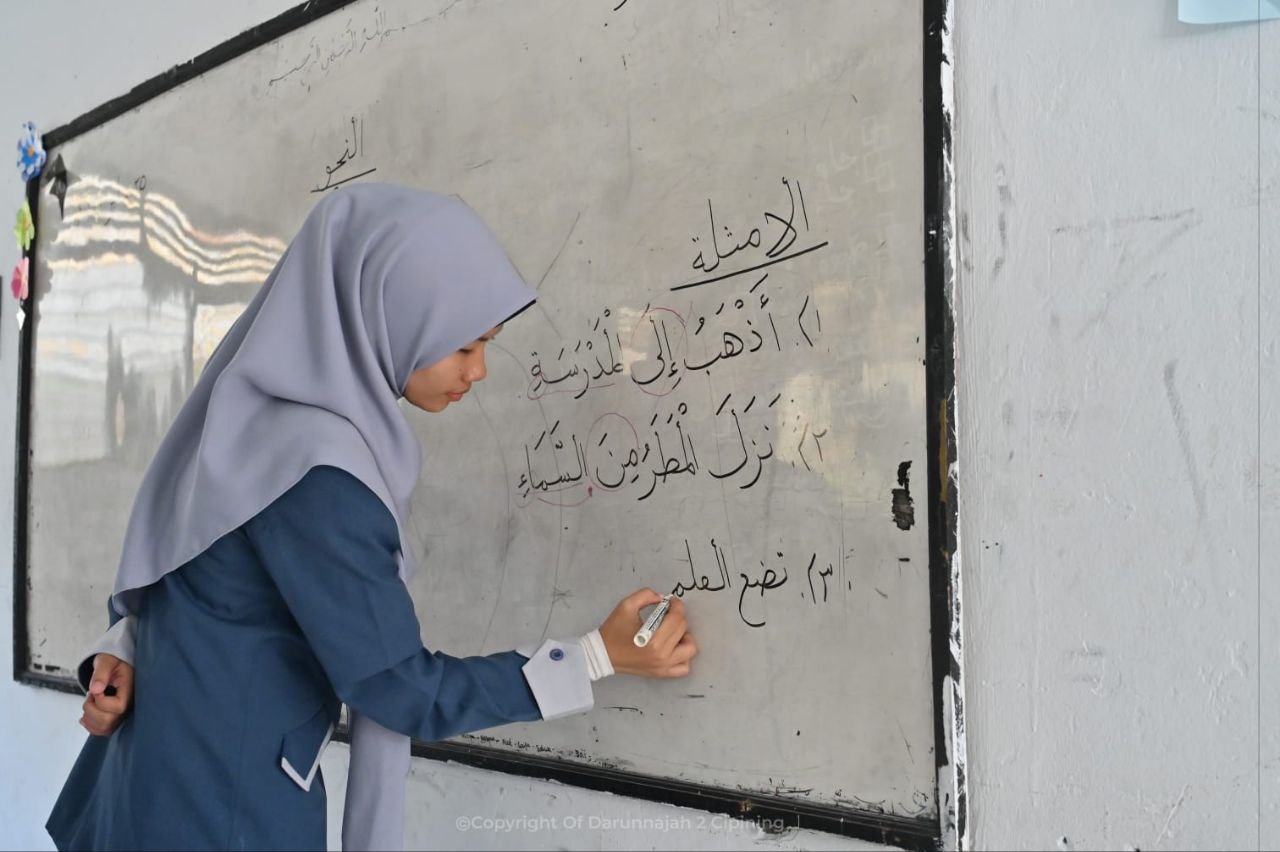 بسم الله الرحمن الرحيم
النحو
الأمثلة
١). أَذْهَبُ إِلَى الْمَدْرَسَةِ
٢). نَزَلَ الْمَطَرُ مِنَ السَّمَاءِ
٣). تضع العلم
©Copyright Of Darunnajah 2 Cipining